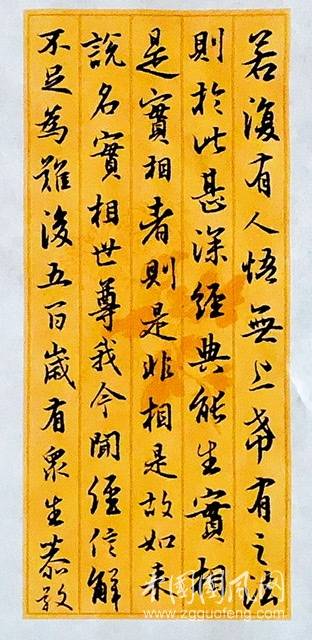 若復有人悟無上希有之法
則於此甚深經典能生實相
是實相者則是非相是故如来
說名實相世尊我今聞經信解
不足為難後五百歲有衆生恭敬
中国国风网
www.zgguofeng.com